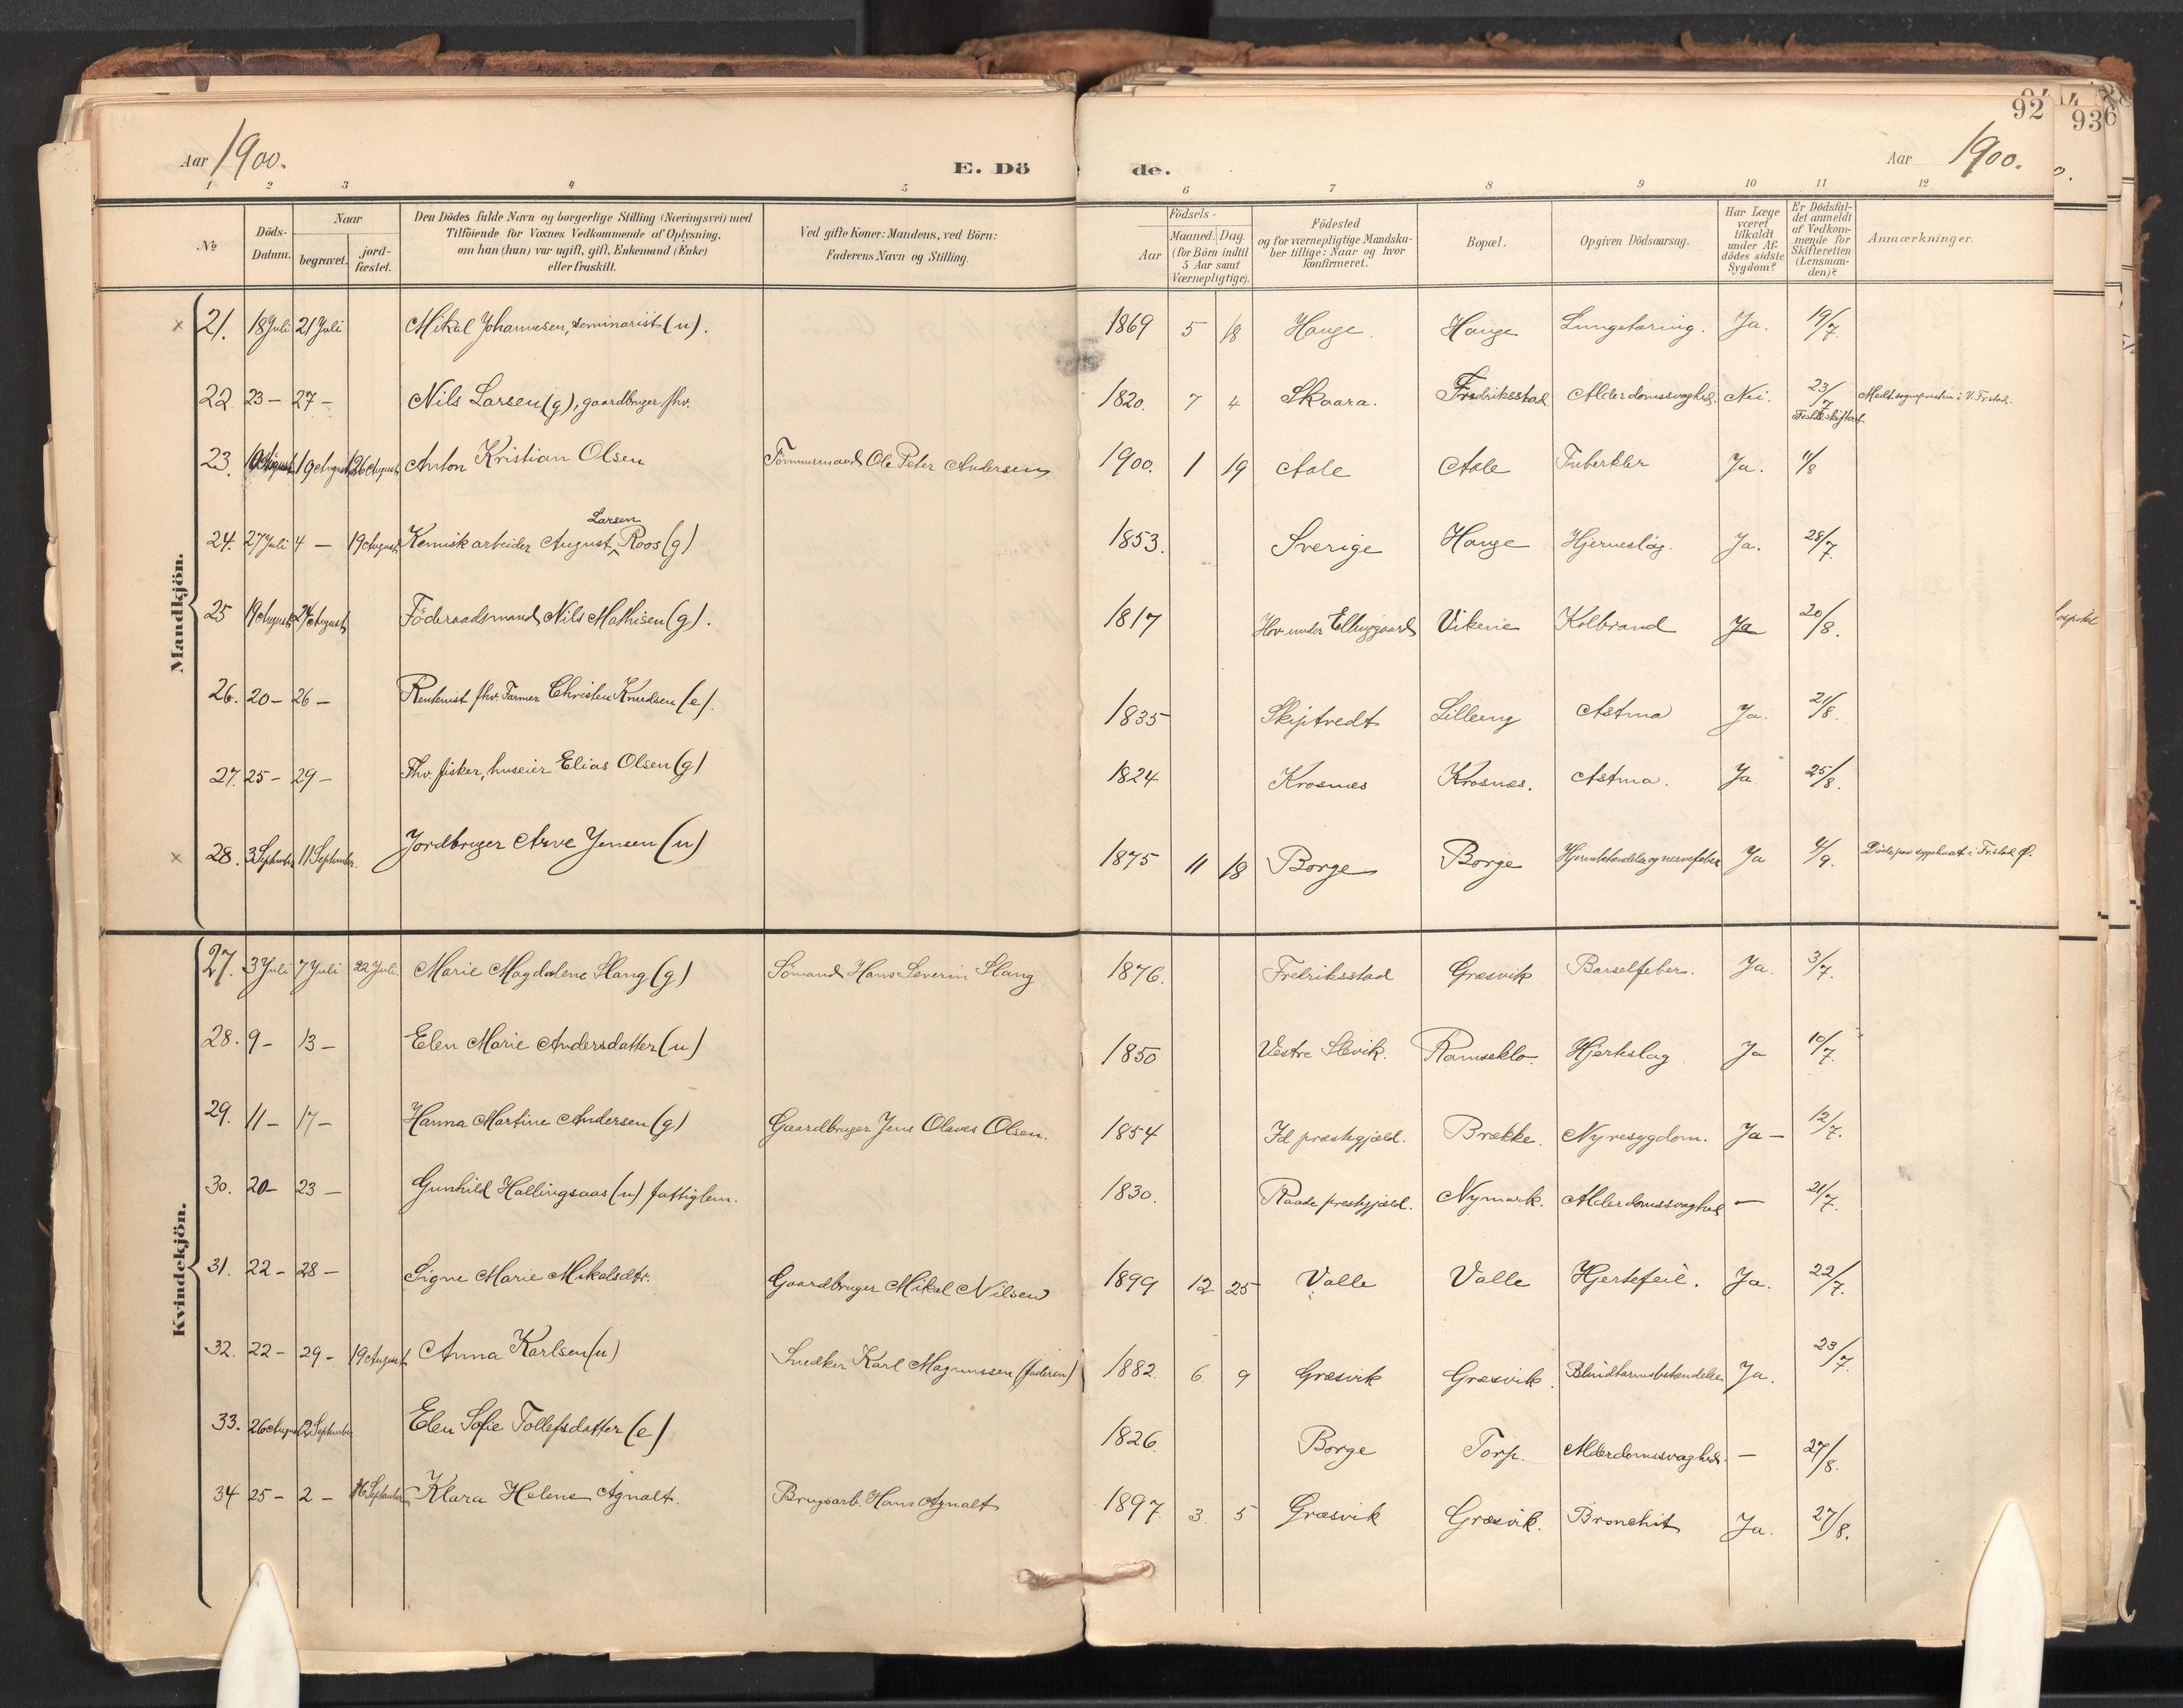 92
93
Aar 1900. E. Dö de. Aar 1900.
1 2 3 4 5 6 7 8 9 10 11 12
No
Döds-
Datum.
Naar
begravet.
jord-
fæstet.
Den Dödes fulde Navn og borgerlige Stilling (Næringsvei) med
Tilföiende for Voxnes Vedkommende af Oplysning,
om han (hun) var ugift, gift, Enkemand (Enke)
eller fraskilt.
Ved gifte Koner: Mandens, ved Börn:
Faderens Navn og Stilling.
Födsels-
Aar
Maaned. Dag.
(for Börn indtil
5 Aar samt
Værnepligtige).
Födested
og for værnepligtige Mandska-
ber tillige: Naar og hvor
konfirmeret.
Bopæl.
Opgiven Dödsaarsag.
Har Læge
været
tilkaldt
under Af-
dödes sidste
Sygdom?
Er Dödsfal-
det anmeldt
af Vedkom-
mende for
Skifteretten
(Lensman-
den)?
Anmærkninger.
Mandkjön.
21. 18 Juli 21 Juli Mikal Johannesen, seminarist (u). 1869 5 18 Hauge. Hauge Lungetæring. Ja. 19/7.
22. 23 – 27 – Nils Larsen (g), gaardbruger fhv. 1820. 7 4 Skaara. Fredriksstad Alderdomssvaghed. Nei. 23/7
23. 19 August 26 August Anton Kristian Olsen Tømmermand Ole Peter Andersen 1900. 1 19 Aale Aale Tuberkler Ja.
24. 27 Juli 4 – 19 August Kemisk arbeider August Larsen Roos (g) 1853. Sverige Hauge Hjerneslag. Ja. 28/7.
25 19 August 24 August Föderaadsmand Nils Mathisen (g). 1817 Hov under Elingaard Vikene Kolbrand Ja 20/8.
26. 20 – 26 – Rentenist fhv. Farmer Christen Knudsen (e). 1835 Skiptvedt Lilleeng Astma Ja. 21/8.
27. 25 – 29 – Fhv. fisker, huseier Elias Olsen (g) 1824 Krosnes Krosnes. Astma. Ja 25/8.
28. 3 September 11 September. Jordbruger Arve Jensen (u) 1875 11 18 Borge Borge Hjernebetændelse og nervefeber Ja 4/9. Döde paa sygehuset i Fr.stad Ø.
Kvindekjön.
27. 3 Juli 7 Juli 22 Juli. Marie Magdalene Slang (g) Sömand Hans Severin Slang 1876. Fredriksstad Græsvik Barselfeber. Ja. 3/7.
28. 9 – 13 – Elen Marie Andersdatter (u) 1850 Vestre Slevik. Ramseklo. Hjerteslag Ja 10/7.
29. 11 – 17 – Hanna Martine Andersen (g) Gaardbruger Jens Olaves Olsen. 1854 Id præstegjæld. Brække. Nyresygdom. Ja – 12/7.
30. 20 – 23 – Gunhild Hallingsaas (u) fattiglem. 1830. Raade prestegjæld. Nymark. Alderdomssvaghed – 21/7.
31. 22 – 28 – Signe Marie Mikalsdtr. Gaardbruger Mikal Nilsen 1899 12 25 Valle Valle Hjertefeil. Ja. 22/7.
32. 22 – 29 – 19 August Anna Karlsen (u) Snedker Karl Magnussen (faderen) 1882. 6. 9 Græsvik Græsvik. Blindtarmsbetændelse Ja. 23/7.
33. 26 August 2 September Elen Sofie Tollefsdatter (e) 1826. Borge Torp. Alderdomssvaghed. – 27/8.
34 25 – 2 – 16 September Klara Helene Agnalt. Brugsarb. Hans Agnalt 1897. 3. 5 Græsvik Græsvik. Bronchit Ja. 27/8.